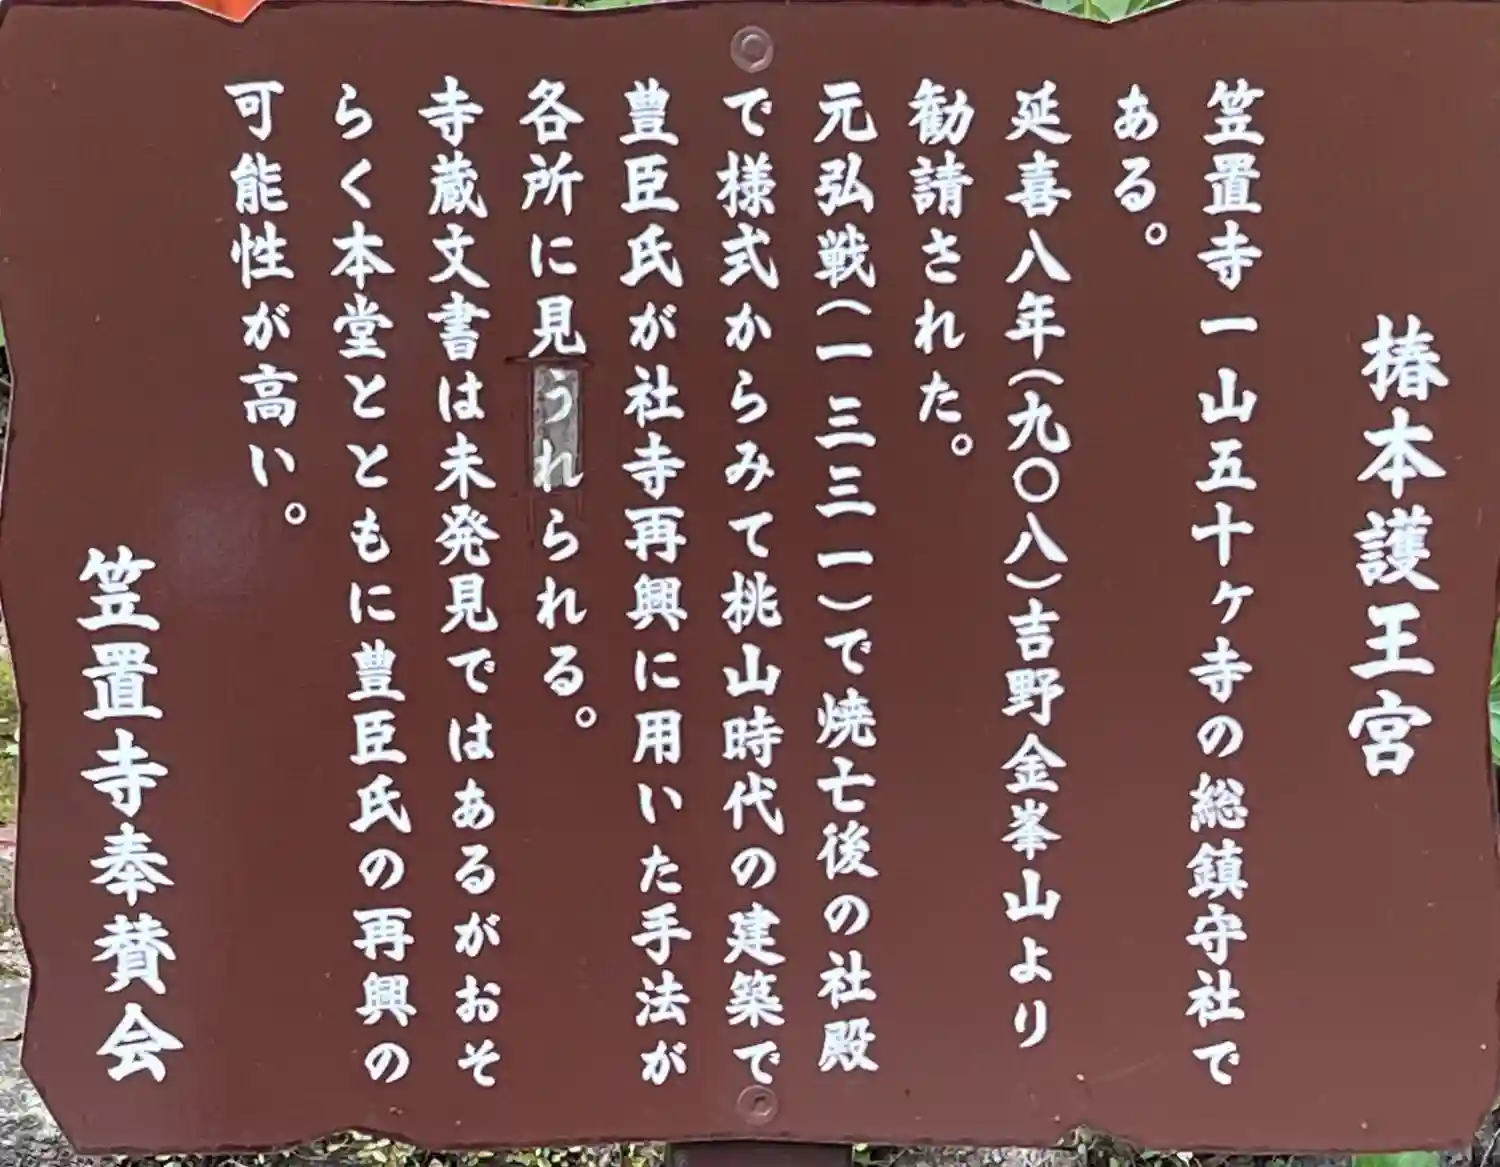 椿本護王宮
笠置寺一山五十ヶ寺の総鎮守社で
ある。
延喜八年(九〇八)吉野金峯山より
勧請された。
元弘戦(一三三一)で焼亡後の社殿
で様式からみて桃山時代の建築で
豊臣氏が社寺再興に用いた手法が
各所に見うれられる。
寺蔵文書は未発見ではあるがおそ
らく本堂とともに豊臣氏の再興の
可能性が高い。
笠置寺奉賛会